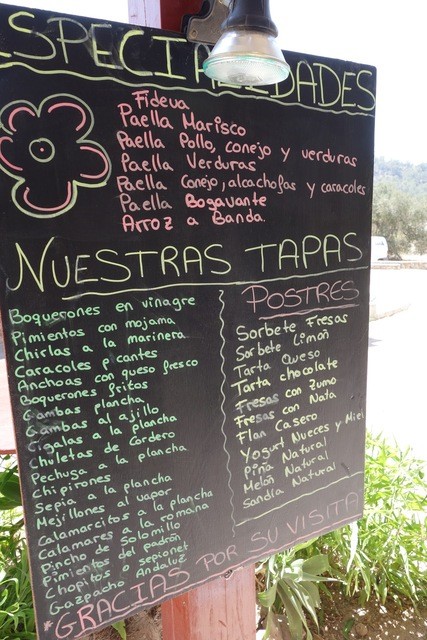 ESPECIALIDADES
Fideua
Paella Marisco
Paella Pollo, conejo y verduras
Paella Verduras
Paella Conejo, alcachofas y caracoles
Paella Bogavante
Arroz a Banda.
NUESTRAS TAPAS
Boquerones en vinagre
Pimientos con mojama
Chirlas a la marinera
Caracoles picantes
Anchoas con queso fresco
Boquerones fritos
Gambas plancha
Gambas al ajillo
Cigalas a la plancha
Chuletas de Cordero
Pechuga a la plancha
Chipirones
Sepia a la plancha
Mejillones al vapor
Calamarcitos a la plancha
Calamares a la romana
Pincho de Solomillo
Pimientos del padrón
Chopitos o sepionet
Gazpacho Andaluz
POSTRES
Sorbete Fresas
Sorbete Limón
Tarta Queso
Tarta chocolate
Fresas con Zumo
Fresas con Nata
Flan Casero
Yogurt Nueces y Miel
Piña Natural
Melón Natural
Sandía Natural
*GRACIAS POR SU VISITA